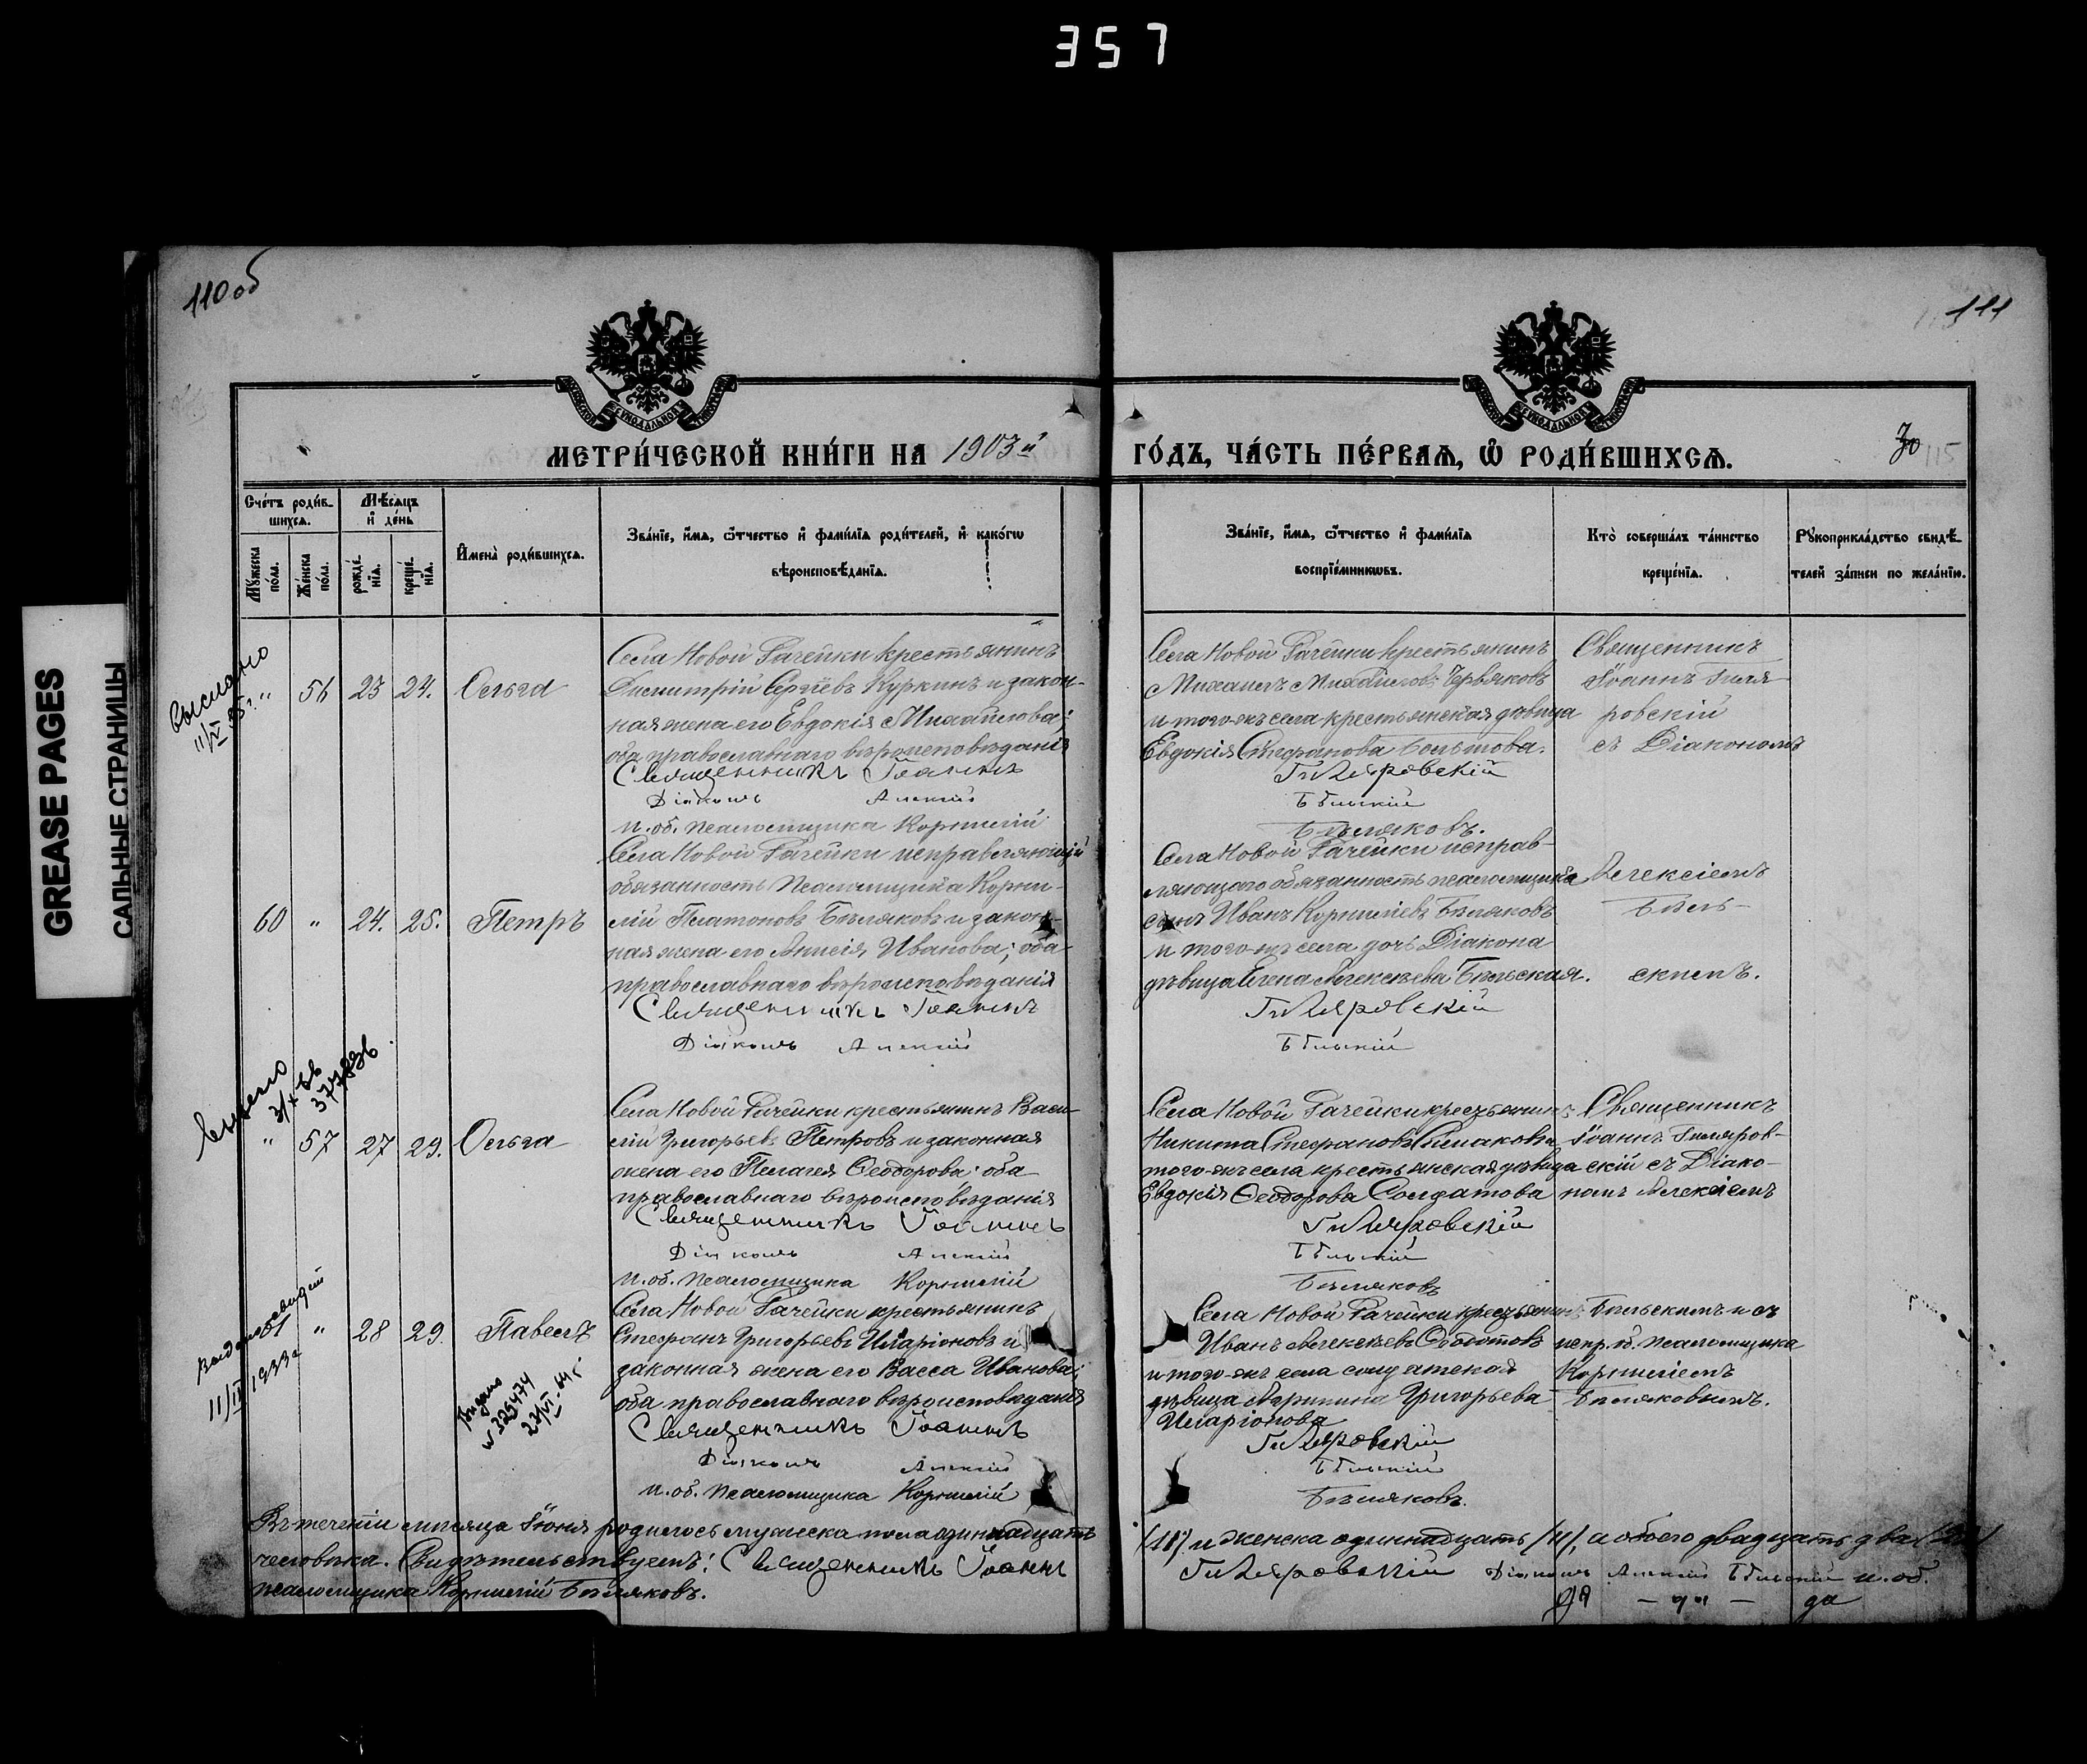 357
110об
111
GREASE PAGES
САЛЬНЫЕ СТРАНИЦЫ
МЕТРИ́ЧЕСКОЙ КНИ́ГИ НА 1903й
ГО́ДЪ, ЧА́СТЬ ПЕ́РВАѦ, Ѡ҆ РОДИ́ВШИХСѦ.
30
115
Сче́тъ роди́в-
шихсѧ.
Мѣ́сѧцъ
и҆ де́нь
Мꙋ́жеска
по́ла.
Же́нска
по́ла.
рожде́-
нїѧ.
креще́-
нїѧ.
И҆мена̀ роди́вшихсѧ.
Зва́нїе, и҆́мѧ, ѻ҆́тчество и҆ фами́лїѧ роди́телей, и҆ како́гѡ
вѣроисповѣ́данїѧ.
Зва́нїе, и҆́мѧ, ѻ҆́тчество и҆ фами́лїѧ
воспрїе́мникѡвъ.
Кто̀ соверша́лъ та́инство
креще́нїѧ.
Рꙋкоприкла́дство свидѣ́-
телей за́писи по жела́нїю.
Выслано
11/IV 55г.
" 56 23 24. Ольга
Села Новой Рачейки крестьянинъ
Димитрій Сергіевъ Куркинъ и закон-
ная жена его Евдокія Михайлова;
оба православнаго вѣроисповѣданія
Священникъ Іоаннъ
Діаконъ Алексій
и. об. псаломщика Корнилій
Села Новой Рачейки крестьянинъ
Михаилъ Михайловъ Червяковъ
и того-жъ села крестьянская дѣвица
Евдокія Стефанова Болтова.
Гиляровскій
Бѣльскій
Бѣляковъ.
Священникъ
Іоаннъ Гиля-
ровскій
съ Діакономъ
60 " 24. 25. Петръ
Села Новой Рачейки исправляющій
обязанность псаломщика Корни-
лій Платоновъ Бѣляковъ и закон-
ная жена его Анисія Иванова; оба
православнаго вѣроисповѣданія
Священникъ Іоаннъ
Діаконъ Алексій
Села Новой Рачейки исправ-
ляющаго обязанность псаломщика
сынъ Иванъ Корниліевъ Бѣляковъ
и того-жъ села дочь Діакона
дѣвица Елена Алексѣева Бѣльская.
Гиляровскій
Бѣльскій
Алексіемъ
Бѣль-
скимъ.
3/X 66
377836
" 57 27 29. Ольга
Села Новой Рачейки крестьянинъ Васи-
лій Григорьевъ Петровъ и законная
жена его Пелагея Ѳеодорова; оба
православнаго вѣроисповѣданія
Священникъ Іоаннъ
Діаконъ Алексій
и. об. псаломщика Корнилій
Села Новой Рачейки крестьянинъ
Никита Стефановъ Симаковъ и
того-жъ села крестьянская дѣвица
Евдокія Ѳеодорова Солдатова
Гиляровскій
Бѣльскій
Бѣляковъ
Священникъ
Іоаннъ Гиляров-
скій съ Діако-
номъ Алексіемъ
11/IV 1933г
61 " 28 29. Павелъ
Выдано
№ 325474
23/VI-64г
Села Новой Рачейки крестьянинъ
Стефанъ Григорьевъ Иларіоновъ и
законная жена его Васса Иванова;
оба православнаго вѣроисповѣданія
Священникъ Іоаннъ
Діаконъ Алексій
и. об. псаломщика Корнилій
Села Новой Рачейки крестьянинъ
Иванъ Алексѣевъ Ѳедотовъ
и того-жъ села солдатская
дѣвица Григорьева
Иларіонова
Гиляровскій
Бѣльскій
Бѣляковъ.
Бѣльскимъ и съ
испр. об. псаломщика
Корниліемъ
Бѣляковымъ.
Въ теченіи мѣсяца Іюня родилось мужеска пола одиннадцать
/11/ и женска одиннадцать /11/, а обоего двадцать два /22/
человѣка. Свидѣтельствуемъ: Священникъ Іоаннъ
Гиляровскій Діаконъ Алексій Бѣльскій и. об.
псаломщика Корнилій Бѣляковъ.